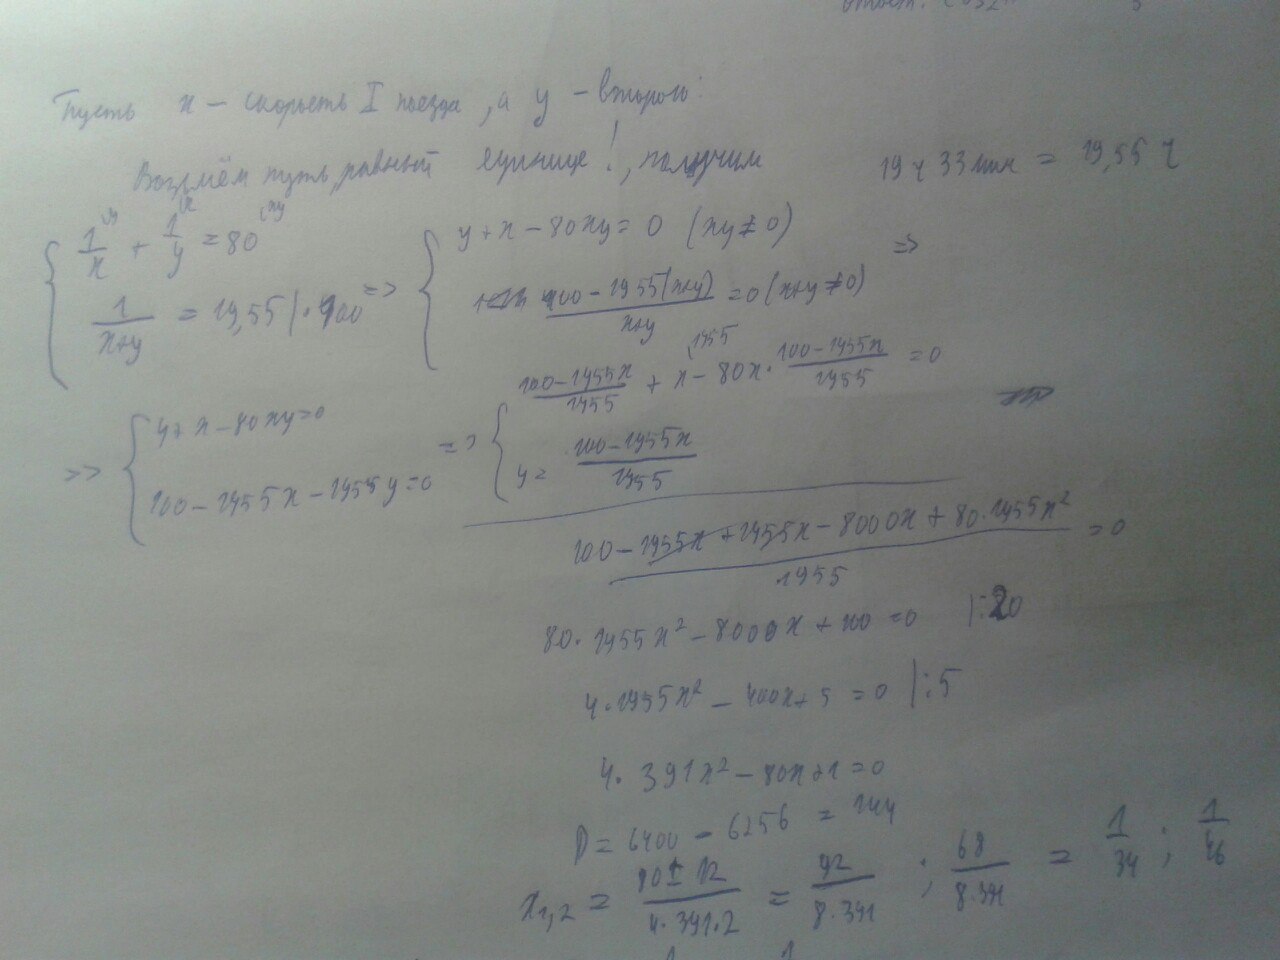 Ответ:
Пусть x – скорость I поезда, а y – второго.
Возьмём путь, равный единице!, получим
19 ч 33 мин = 19,55 ч
{ 1/x + 1/y = 80
1/(x+y) = 19,55 | · 100 =>
{ y + x – 80xy = 0 (xy ≠ 0)
(100 – 1955(x+y))/(x+y) = 0 (x+y ≠ 0) =>
=> { y + x – 80xy = 0
100 – 1955x – 1955y = 0 =>
{ (100 – 1955x)/1955 + x – 80x · (100 – 1955x)/1955 = 0
y = (100 – 1955x)/1955
(100 – 1955x + 1955x – 8000x + 80 · 1955x²)/1955 = 0
80 · 1955x² – 8000x + 100 = 0 | : 20
4 · 1955x² – 400x + 5 = 0 | : 5
4 · 391x² – 80x + 1 = 0
D = 6400 – 6256 = 144
x₁,₂ = (80 ± 12)/(4 · 391 · 2) = 92/(8 · 391) ; 68/(8 · 391) = 1/34 ; 1/46